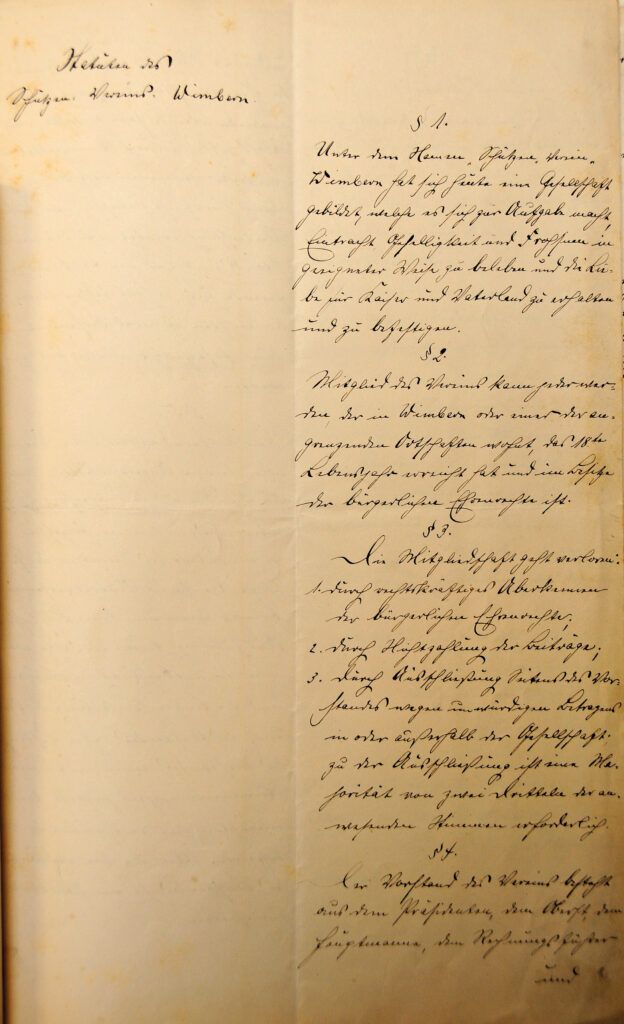 Statuten des
Schützen-Vereins-Wimbern.
§ 1.
Unter dem Namen „Schützen-Verein"
Wimbern hat sich heute eine Gesellschaft
gebildet, welche es sich zur Aufgabe macht,
Eintracht Geselligkeit und Frohsinn in
geeigneter Weise zu beleben und die Lie-
be für Kaiser und Vaterland zu erhalten
und zu befestigen.
§ 2.
Mitglied des Vereins kann jeder wer-
den, der in Wimbern oder einer der an-
grenzenden Ortschaften wohnt, das 18te
Lebensjahr erreicht hat und im Besitze
der bürgerlichen Ehrenrechte ist.
§ 3.
Die Mitgliedschaft geht verloren:
1. durch rechtskräftiges Aberkennen
der bürgerlichen Ehrenrechte;
2. durch Nichtzahlung der Beiträge;
3. durch Ausschließung Seitens des Vor-
standes wegen unwürdigen Betragens
in oder außerhalb der Gesellschaft.
Zu der Ausschließung ist eine Ma-
jorität von zwei Dritteln der an-
wesenden Stimmen erforderlich.
§ 4.
Der Vorstand des Vereins besteht
aus dem Präsidenten, dem Oberst, dem
Hauptmanne, dem Rechnungsführer
und